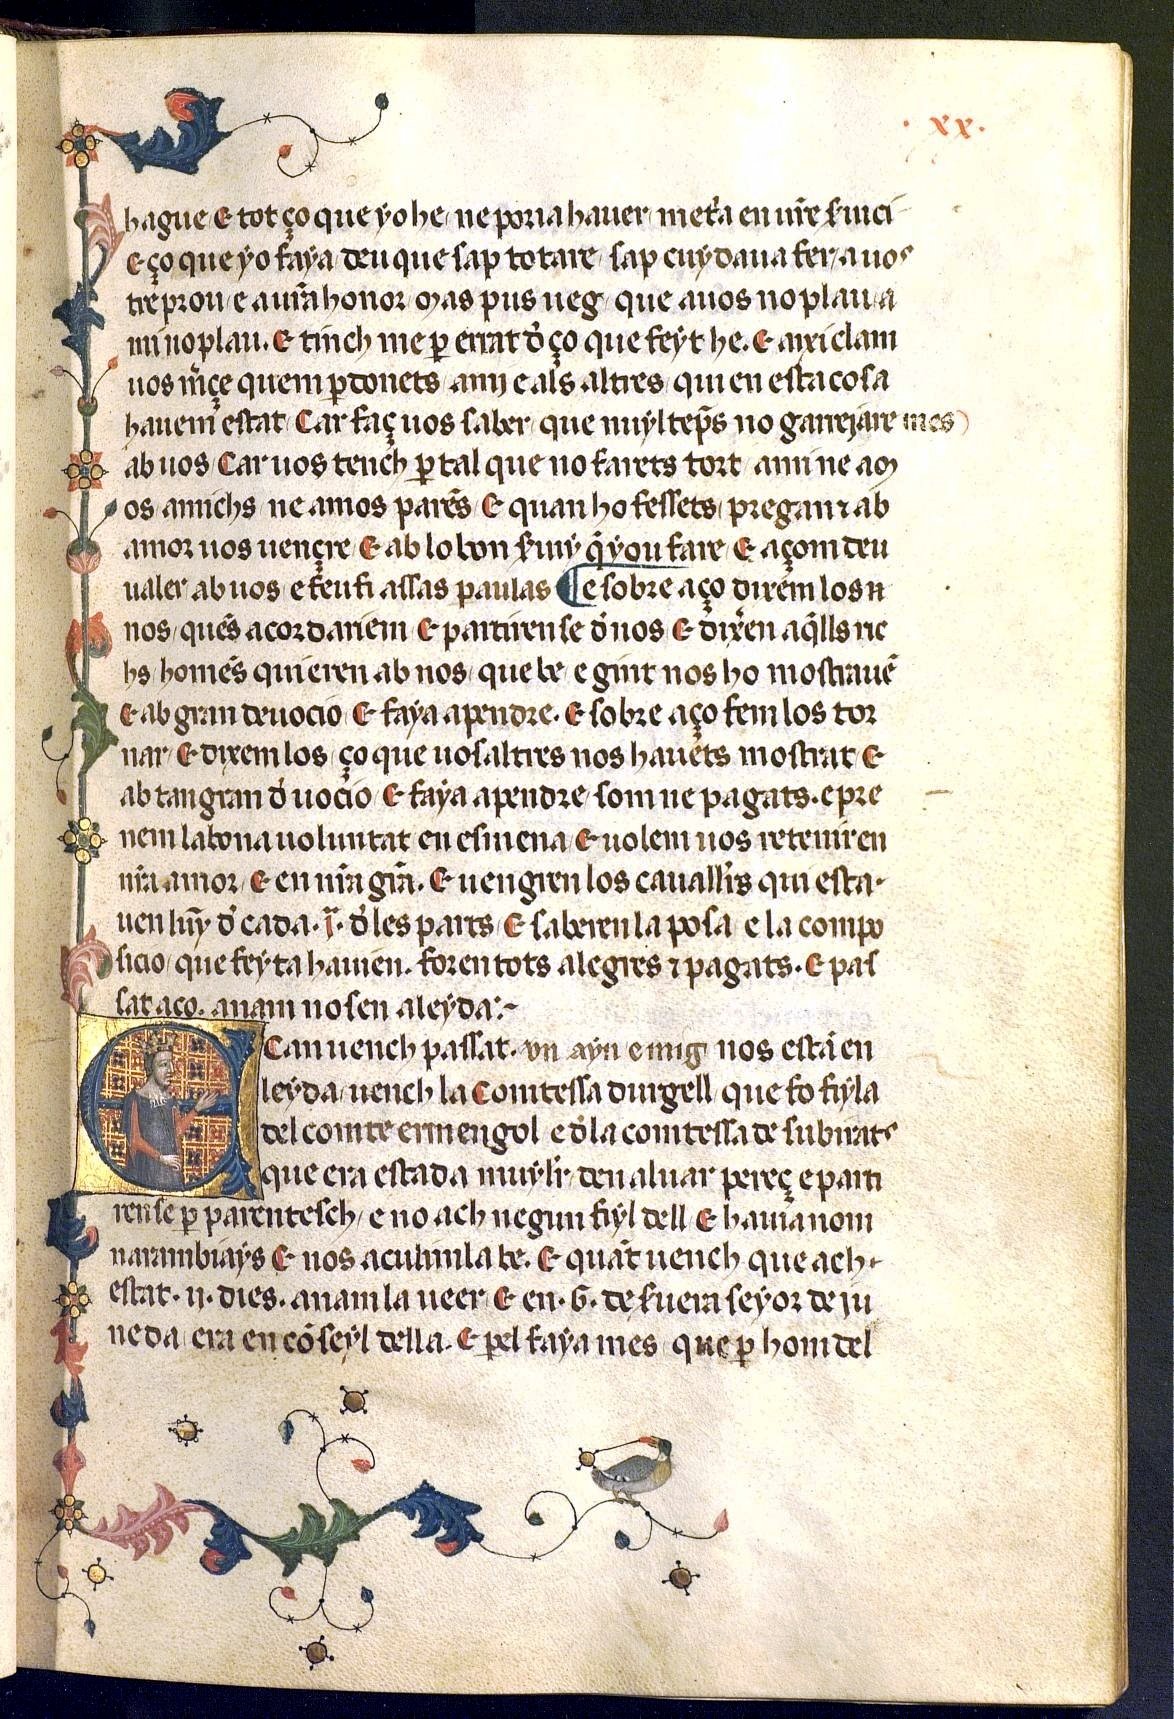 · xx ·
hague E tot ço que yo he ne poria hauer metra en ur̃e seruici
E ço que yo faya deu que sap tot are sap cuydaua fer a uos
tre prou e a ur̃a honor mas pus ueg que a uos no plau a
mi no plau. E tinch me ꝑ errat d̕ ço que feyt he. E aixi clam
uos mr̃çe quem ꝑdonets a mi e als altres qui en esta cosa
hauem estat Car faç uos saber que nuyl tẽps no garrejare mes
ab uos Car uos tench ꝑ tal que no farets tort a mi ne a m
os amichs ne a mos parẽs E quan ho fessets pregan ⁊ ab
amor uos uençre E ab lo bon seruiy q̃ you fare E açom deu
ualer ab uos e feu fi assas paulas ¶ E sobre aço dixem los n
nos ques acordariem E partiren se d̕ nos E dixẽn aq̃lls ric
hs homẽs qui eren ab nos que be e gint nos ho mostrauẽ
E ab gran deuocio E faya a pendre. E sobre aço fem los tor
nar E dixem los ço que uosaltres nos hauets mostrat E
ab tan gran d̕uocio E faya a pendre som ne pagats. e pre
nem la bona uoluntat en esmena E uolem uos retenir en
nr̃a amor E en nr̃a gr̃a. E uengren los cauallr̃s qui esta
uen luỹ d̕ cada .ĩ. d̕ les parts E saberen la posa e la compo
sicio que feyta hauien. foren tots alegres ⁊ pagats. E pas
sat aço. anam nosen a leyda:~
Can uench passat. vn ayn e mig nos estã en
leyda uench la Comtessa durgell que fo fiyla
del comte ermengol e d̕ la comtessa de subirats
que era estada muylr̃ den aluar pereç e parti
rense ꝑ parentesch e no ach negun fiyl dell E hauia nom
narambiays E nos acuhim la be. E quãt uench que ach
estat .ij. dies. anam la ueer E en .G. de seruera seyor de ju
neda era en cõseyl della. E pel faya mes que ꝑ hom del